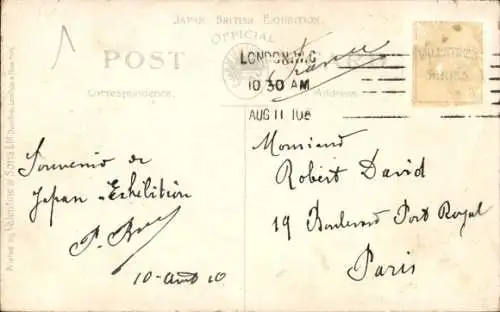 JAPAN BRITISH EXHIBITION.
OFFICIAL
POST CARD
LONDON.W.C
10 30 AM
AUG 11 10
France
VALENTINE'S
SERIES
Correspondence.
Address.
Printed by Valentine & Sons Ltd
Souvenir de
Japan-Exhibition
10-Août 10
Monsieur
Robert David
19 Boulevard Port Royal
Paris